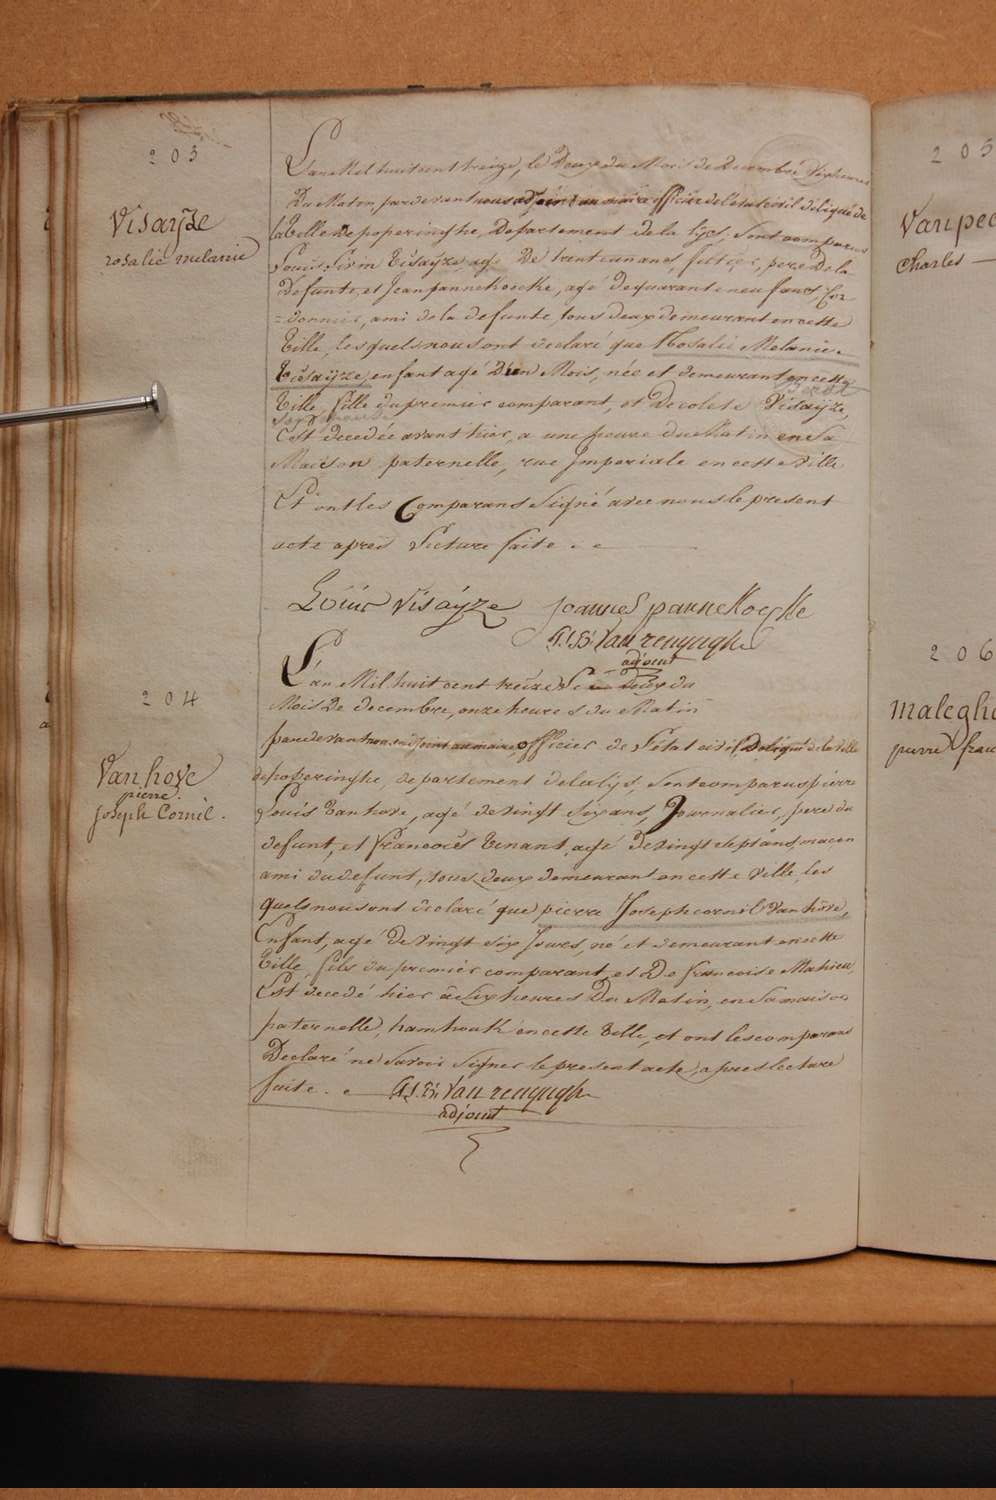 203
Visaÿze
rosalie melanie
L'an Mil huit cent treize, le Deux du Mois de Decembre, dix heures
Du Matin, pardevant nous adjoint au maire officier de l'état civil delegué de
la Ville de poperinghe, Departement de la Lys, sont comparus
Louis Visaÿze, agé De trente un ans, pere De la
Defunte, et Jean pannekoecke, agé de quarante neuf ans Cor-
=donnier, ami de la defunte, tous deux demeurant en cette
Ville, lesquels nous ont declaré que Rosalie Melanie
Visaÿze, enfant agé D'un Mois, née et demeurant en cette
Ville, fille du premier comparant, et De colete Visaÿze,
Est decedée avant hier, a une heure du Matin en Sa
Maison paternelle, rue Imperiale en cette Ville
Et ont les Comparans Signé avec nous le present
acte apres Lecture faite . .
Loüis Visaÿze Joannes pannekoecke
Van renynghe
adjoint
204
Van hove
pierre
joseph Cornil .
L'an Mil huit cent treize Le deux du
Mois De decembre, onze heures du Matin
pardevant nous adjoint au maire, officier de l'état civil, Delegué de la Ville
de poperinghe, departement de la lÿs, sont comparus pierre
Louis Vanhove, agé de vingt six ans, Journalier, pere du
defunt, et francois Venant, agé De vingt sept ans, macon
ami du defunt, tous deux demeurant en cette Ville, les
quels nous ont declaré que pierre Joseph cornil Van hove,
Enfant, agé de vingt six Jours, né et demeurant en cette
Ville, fils du premier comparant, et De francoise Mahieu,
Est decedé hier à six heures Du Matin, en sa maison
paternelle, hamhouk en cette Ville, et ont les comparans
Declaré ne Savoir Signer le present acte, apres lecture
faite . Van renynghe
adjoint
205
Van pee
Charles
206
Maleghe
pierre fran